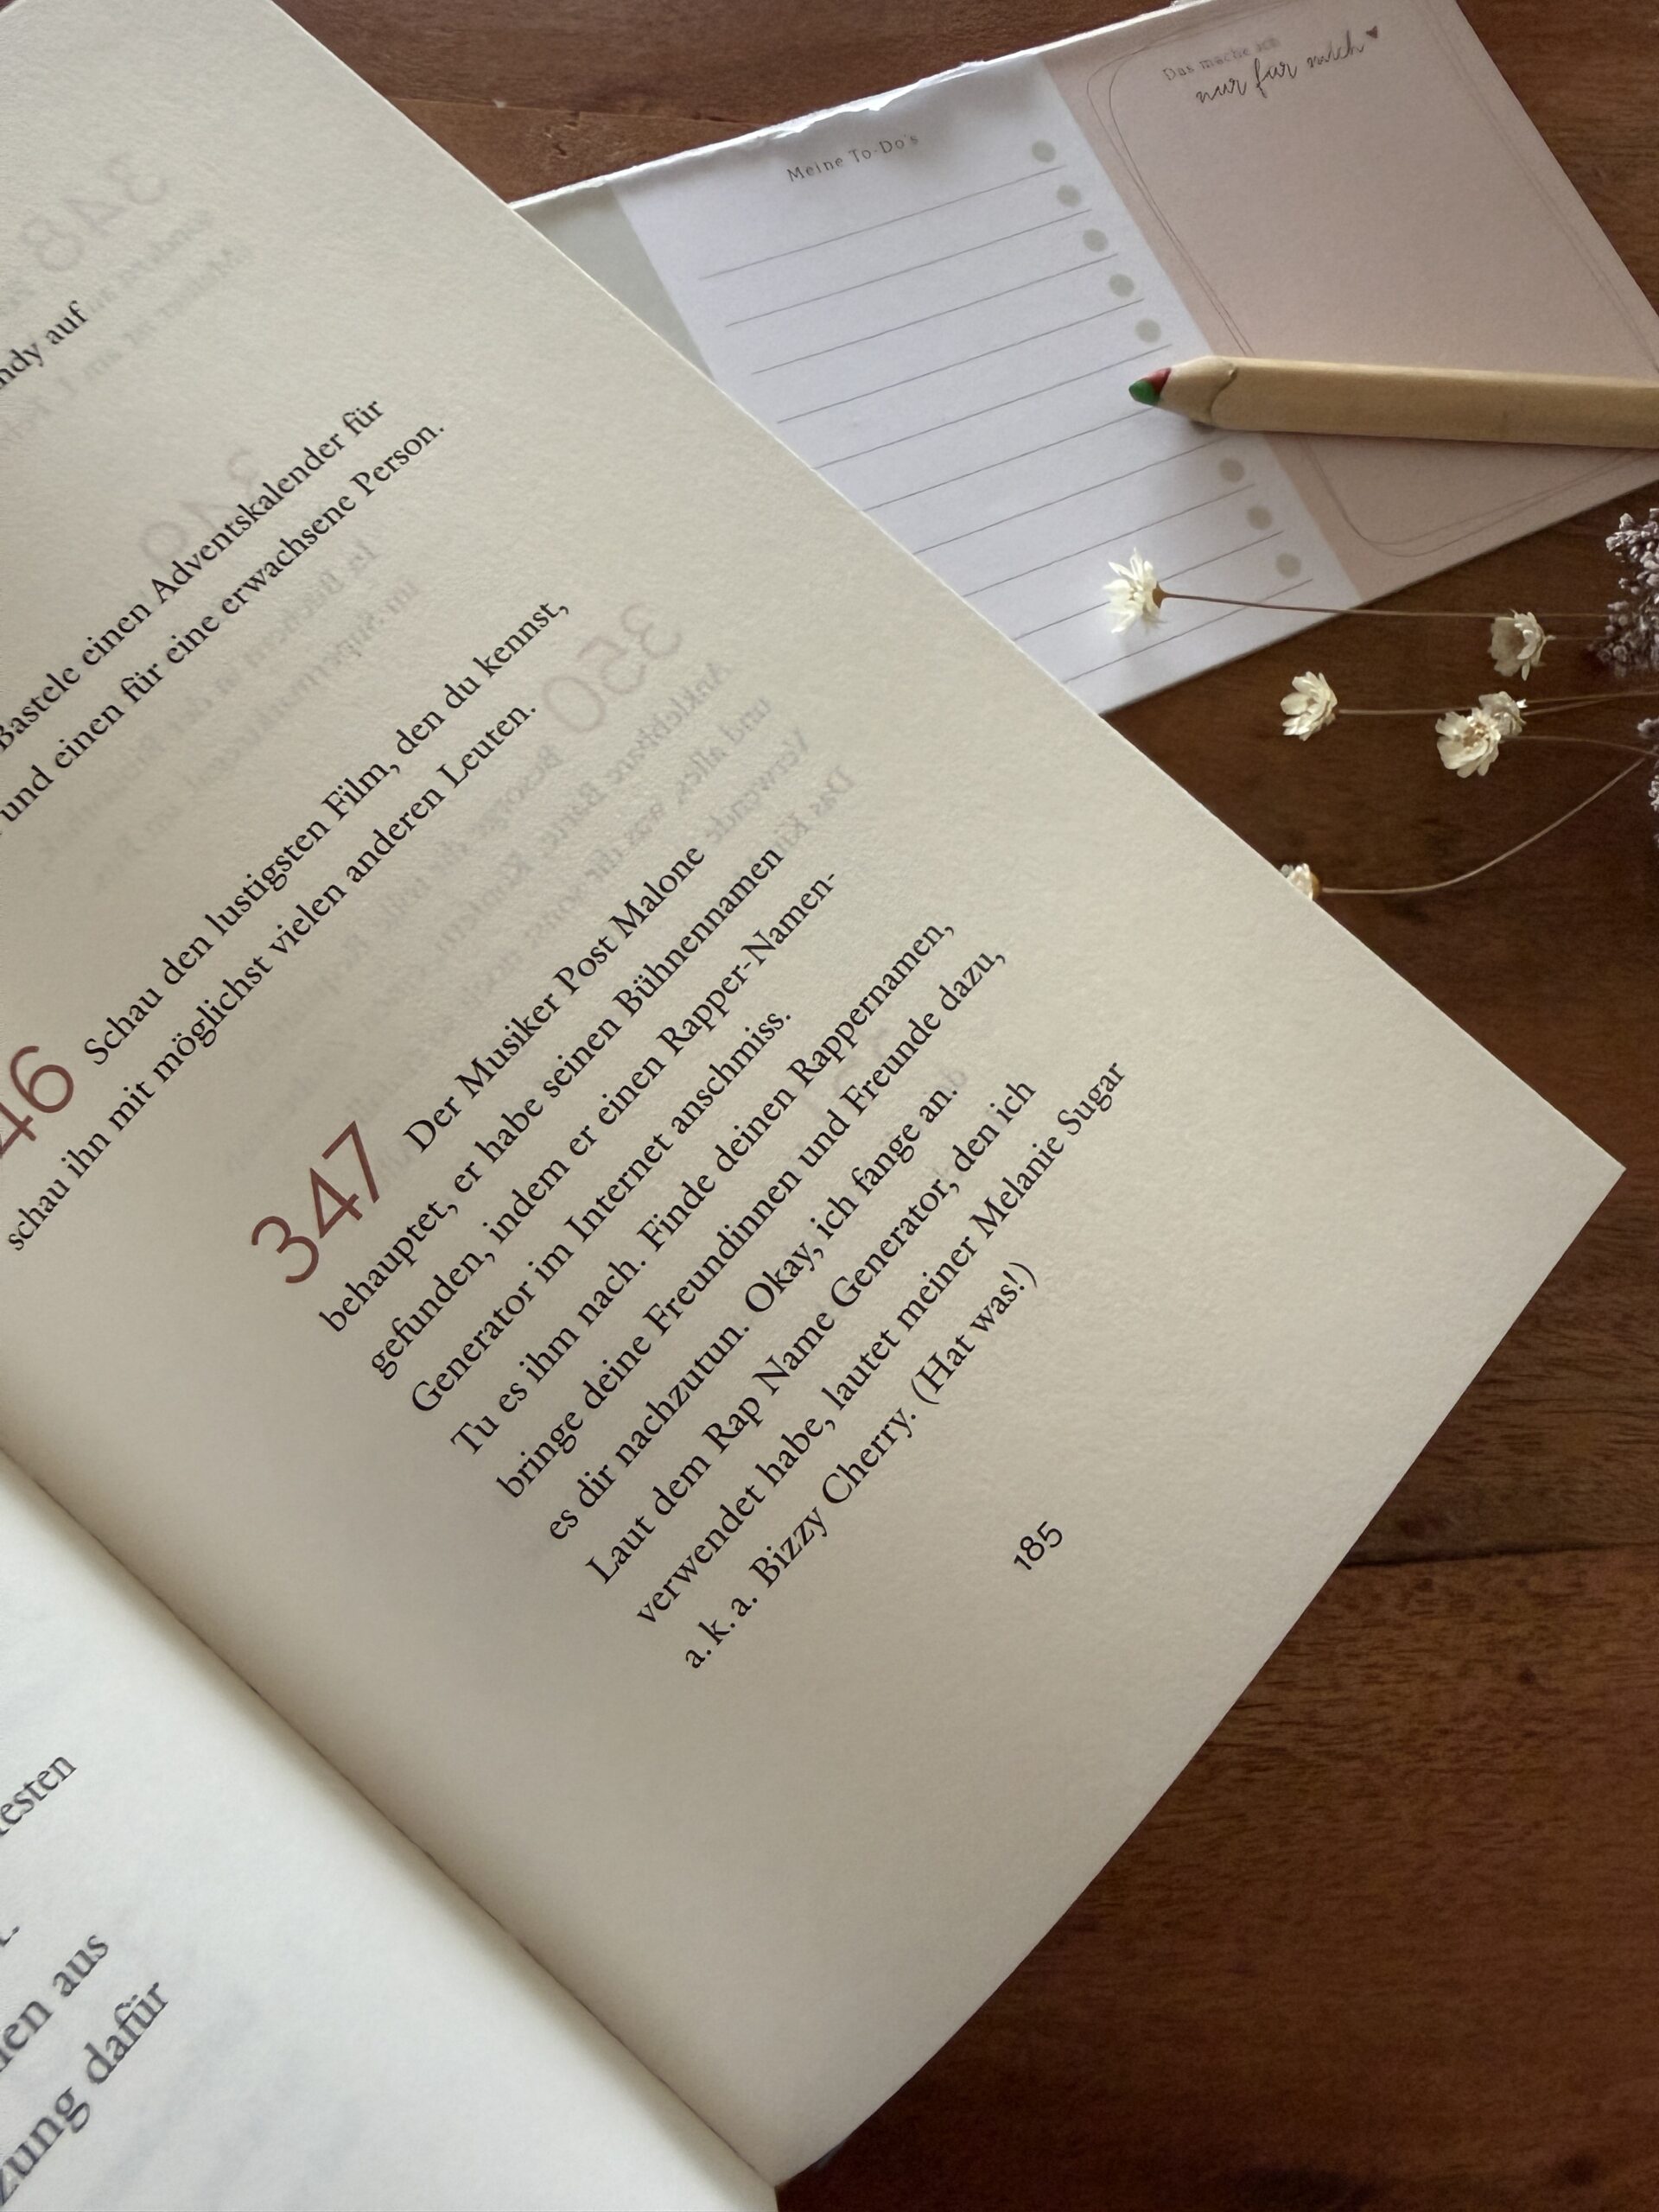 auf
Bastele einen Adventskalender für
und einen für eine erwachsene Person.
46 Schau den lustigsten Film, den du kennst,
schau ihn mit möglichst vielen anderen Leuten.
347 Der Musiker Post Malone
behauptet, er habe seinen Bühnennamen
gefunden, indem er einen Rapper-Namen-
Generator im Internet anschmiss.
Tu es ihm nach. Finde deinen Rappernamen,
bringe deine Freundinnen und Freunde dazu,
es dir nachzutun. Okay, ich fange an.
Laut dem Rap Name Generator, den ich
verwendet habe, lautet meiner Melanie Sugar
a. k. a. Bizzy Cherry. (Hat was!)
185
aus
dafür
Meine To-Do's
Das mache ich
nur für mich